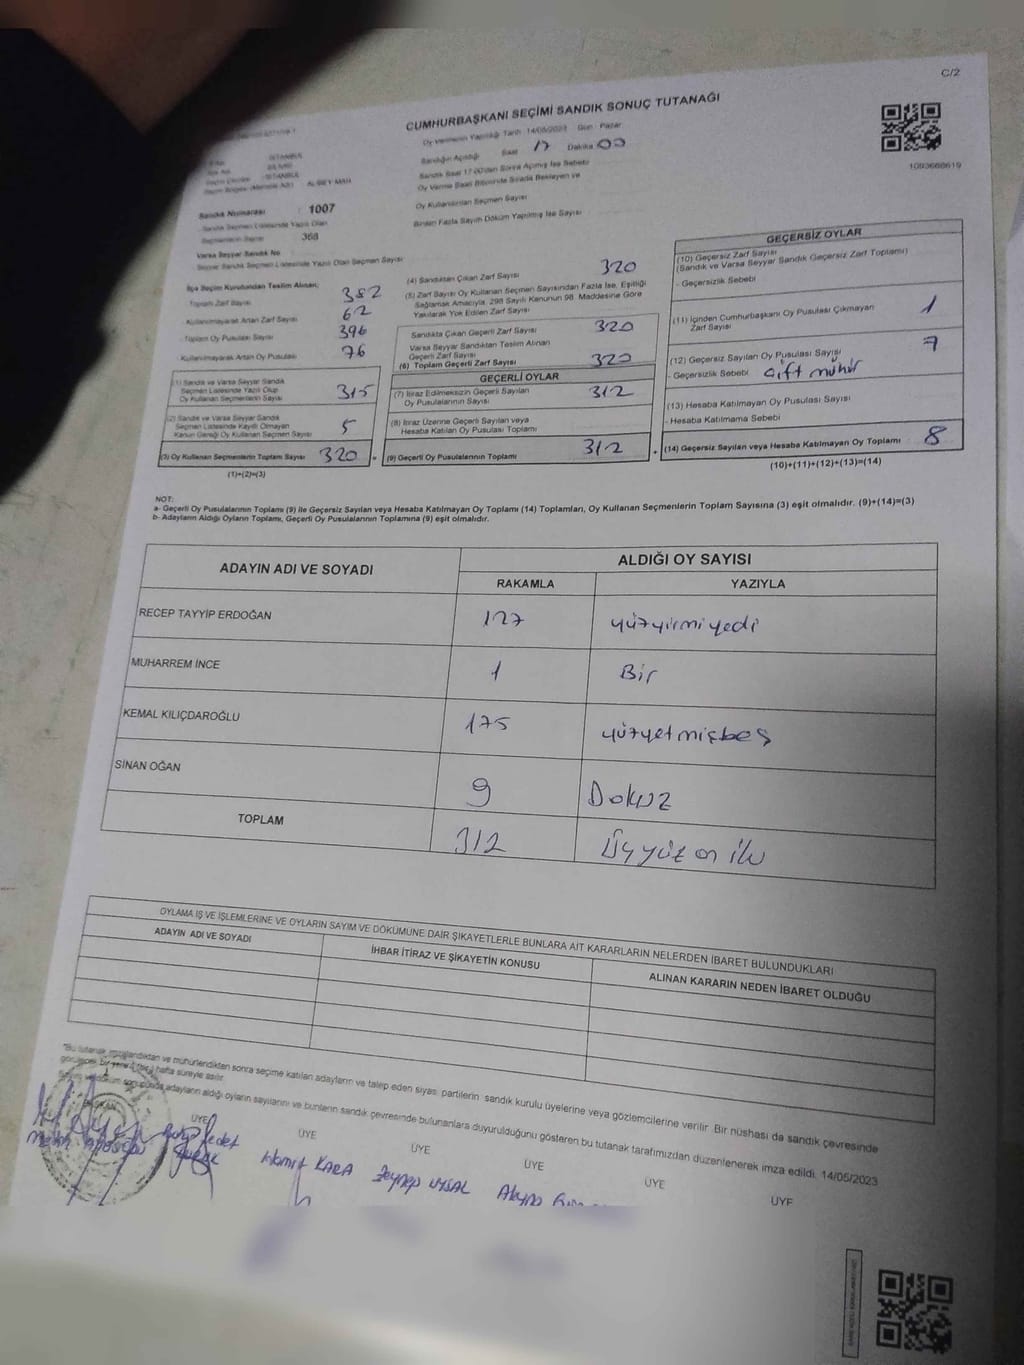 C/2
CUMHURBAŞKANI SEÇİMİ SANDIK SONUÇ TUTANAĞI
Oy Vermenin Yapıldığı Tarih : 14/05/2023 Gün : Pazar
Sandığın Açıldığı Saat 17 Dakika 00
Sandık Saat 17.00'dan Sonra Açılmış İse Sebebi
Oy Verme Saati Bitiminde Sırada Bekleyen ve
Oy Kullandırılan Seçmen Sayısı
Birden Fazla Sayım Döküm Yapılmış İse Sayısı
1093668619
İSTANBUL
İSTANBUL
Sandık Numarası 1007
Sandık Seçmen Listesinde Yazılı Olan
Seçmenlerin Sayısı 368
Varsa Seyyar Sandık No
Seyyar Sandık Seçmen Listesinde Yazılı Olan Seçmen Sayısı
İlçe Seçim Kurulundan Teslim Alınan;
Toplam Zarf Sayısı 382
- Kullanılmayarak Artan Zarf Sayısı 62
- Toplam Oy Pusulası Sayısı 396
- Kullanılmayarak Artan Oy Pusulası 76
(1) Sandık ve Varsa Seyyar Sandık
Seçmen Listesinde Yazılı Olup
Oy Kullanan Seçmenlerin Sayısı 315
(2) Sandık ve Varsa Seyyar Sandık
Seçmen Listesinde Kayıtlı Olmayan
Kanun Gereği Oy Kullanan Seçmen Sayısı 5
(3) Oy Kullanan Seçmenlerin Toplam Sayısı 320
(1)+(2)=(3)
(4) Sandıktan Çıkan Zarf Sayısı 320
(5) Zarf Sayısı Oy Kullanan Seçmen Sayısından Fazla İse, Eşitliği
Sağlamak Amacıyla, 298 Sayılı Kanunun 98. Maddesine Göre
Yakılarak Yok Edilen Zarf Sayısı
Sandıkta Çıkan Geçerli Zarf Sayısı 320
Varsa Seyyar Sandıktan Teslim Alınan
Geçerli Zarf Sayısı
(6) Toplam Geçerli Zarf Sayısı 320
GEÇERLİ OYLAR
(7) İtiraz Edilmeksizin Geçerli Sayılan
Oy Pusulalarının Sayısı 312
(8) İtiraz Üzerine Geçerli Sayılan veya
Hesaba Katılan Oy Pusulası Toplamı
= (9) Geçerli Oy Pusulalarının Toplamı 312
GEÇERSİZ OYLAR
(10) Geçersiz Zarf Sayısı
(Sandık ve Varsa Seyyar Sandık Geçersiz Zarf Toplamı)
- Geçersizlik Sebebi
(11) İçinden Cumhurbaşkanı Oy Pusulası Çıkmayan
Zarf Sayısı 1
(12) Geçersiz Sayılan Oy Pusulası Sayısı 7
- Geçersizlik Sebebi Çift mühür
(13) Hesaba Katılmayan Oy Pusulası Sayısı
- Hesaba Katılmama Sebebi
+ (14) Geçersiz Sayılan veya Hesaba Katılmayan Oy Toplamı 8
(10)+(11)+(12)+(13)=(14)
NOT:
a- Geçerli Oy Pusulalarının Toplamı (9) ile Geçersiz Sayılan veya Hesaba Katılmayan Oy Toplamı (14) Toplamları, Oy Kullanan Seçmenlerin Toplam Sayısına (3) eşit olmalıdır. (9)+(14)=(3)
b- Adayların Aldığı Oyların Toplamı, Geçerli Oy Pusulalarının Toplamına (9) eşit olmalıdır.
ADAYIN ADI VE SOYADI
ALDIĞI OY SAYISI
RAKAMLA YAZIYLA
RECEP TAYYİP ERDOĞAN 127 yüzyirmiyedi
MUHARREM İNCE 1 Bir
KEMAL KILIÇDAROĞLU 175 yüzyetmişbeş
SİNAN OĞAN 9 Dokuz
TOPLAM 312 Üçyüz on iki
OYLAMA İŞ VE İŞLEMLERİNE VE OYLARIN SAYIM VE DÖKÜMÜNE DAİR ŞİKAYETLERLE BUNLARA AİT KARARLARIN NELERDEN İBARET BULUNDUKLARI
ADAYIN ADI VE SOYADI İHBAR İTİRAZ VE ŞİKAYETİN KONUSU ALINAN KARARIN NEDEN İBARET OLDUĞU
"Bu tutanak imzalandıktan ve mühürlendikten sonra seçime katılan adayların ve talep eden siyasi partilerin sandık kurulu üyelerine veya gözlemcilerine verilir. Bir nüshası da sandık çevresinde
görülecek bir yere 1 (bir) hafta süreyle asılır.
Sayım ve döküm sonucunda adayların aldığı oyların sayılarını ve bunların sandık çevresinde bulunanlara duyurulduğunu gösteren bu tutanak tarafımızdan düzenlenerek imza edildi. 14/05/2023
BAŞKAN ÜYE ÜYE ÜYE ÜYE ÜYE ÜYE
Hamit KARA Zeynep UYSAL